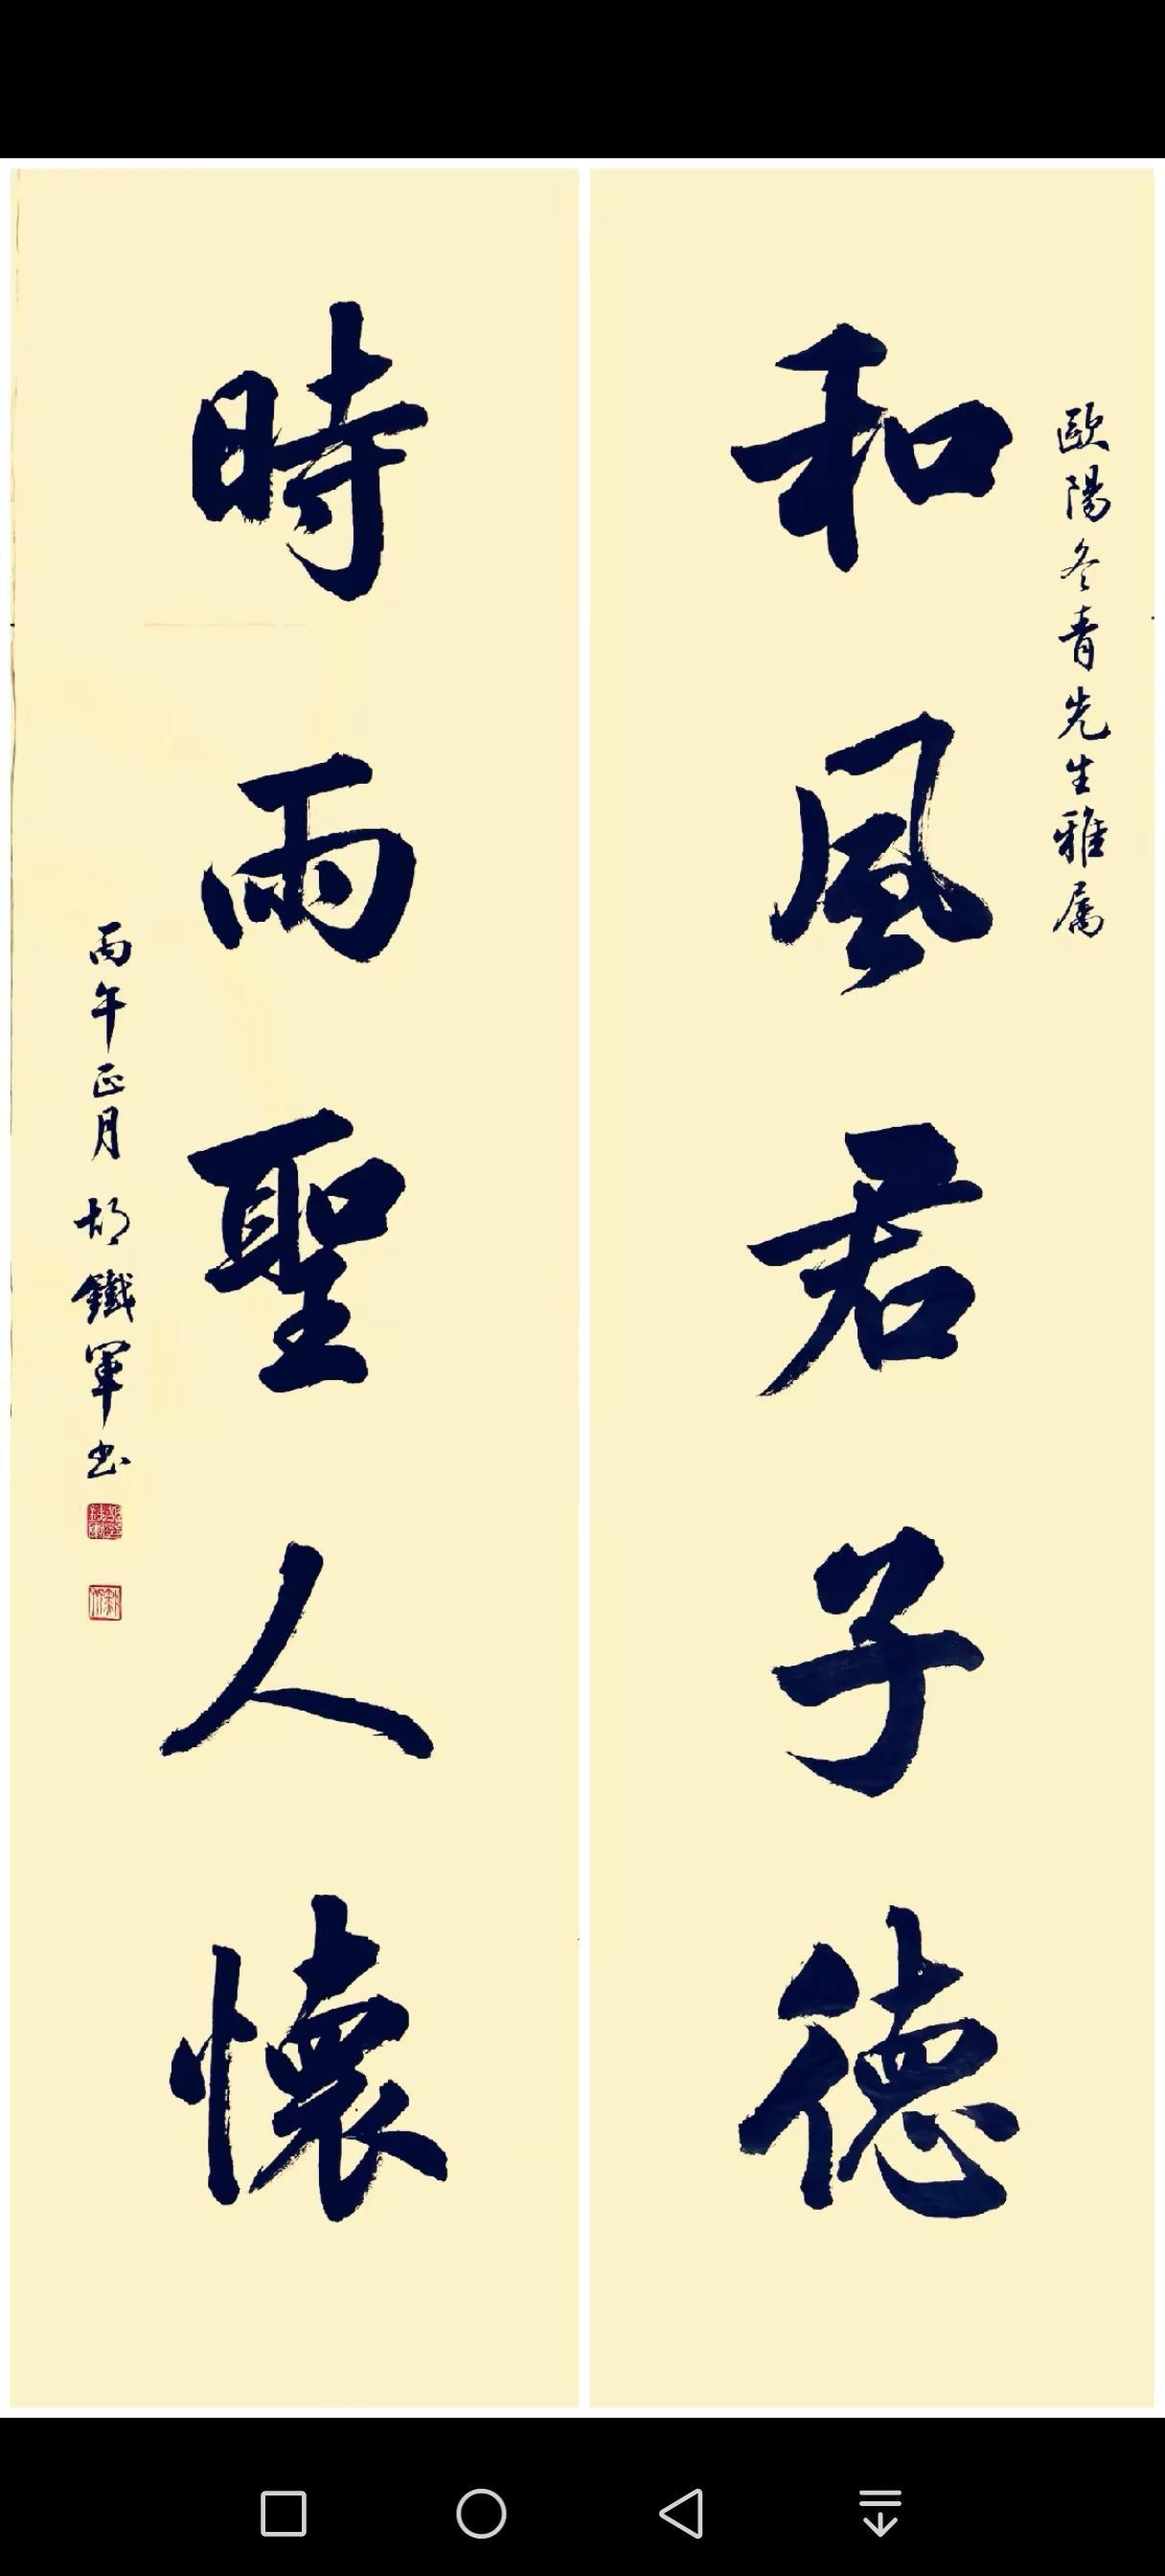 歐陽冬青先生雅属
和風君子德
時雨聖人懷
丙午正月 胡鐵軍书